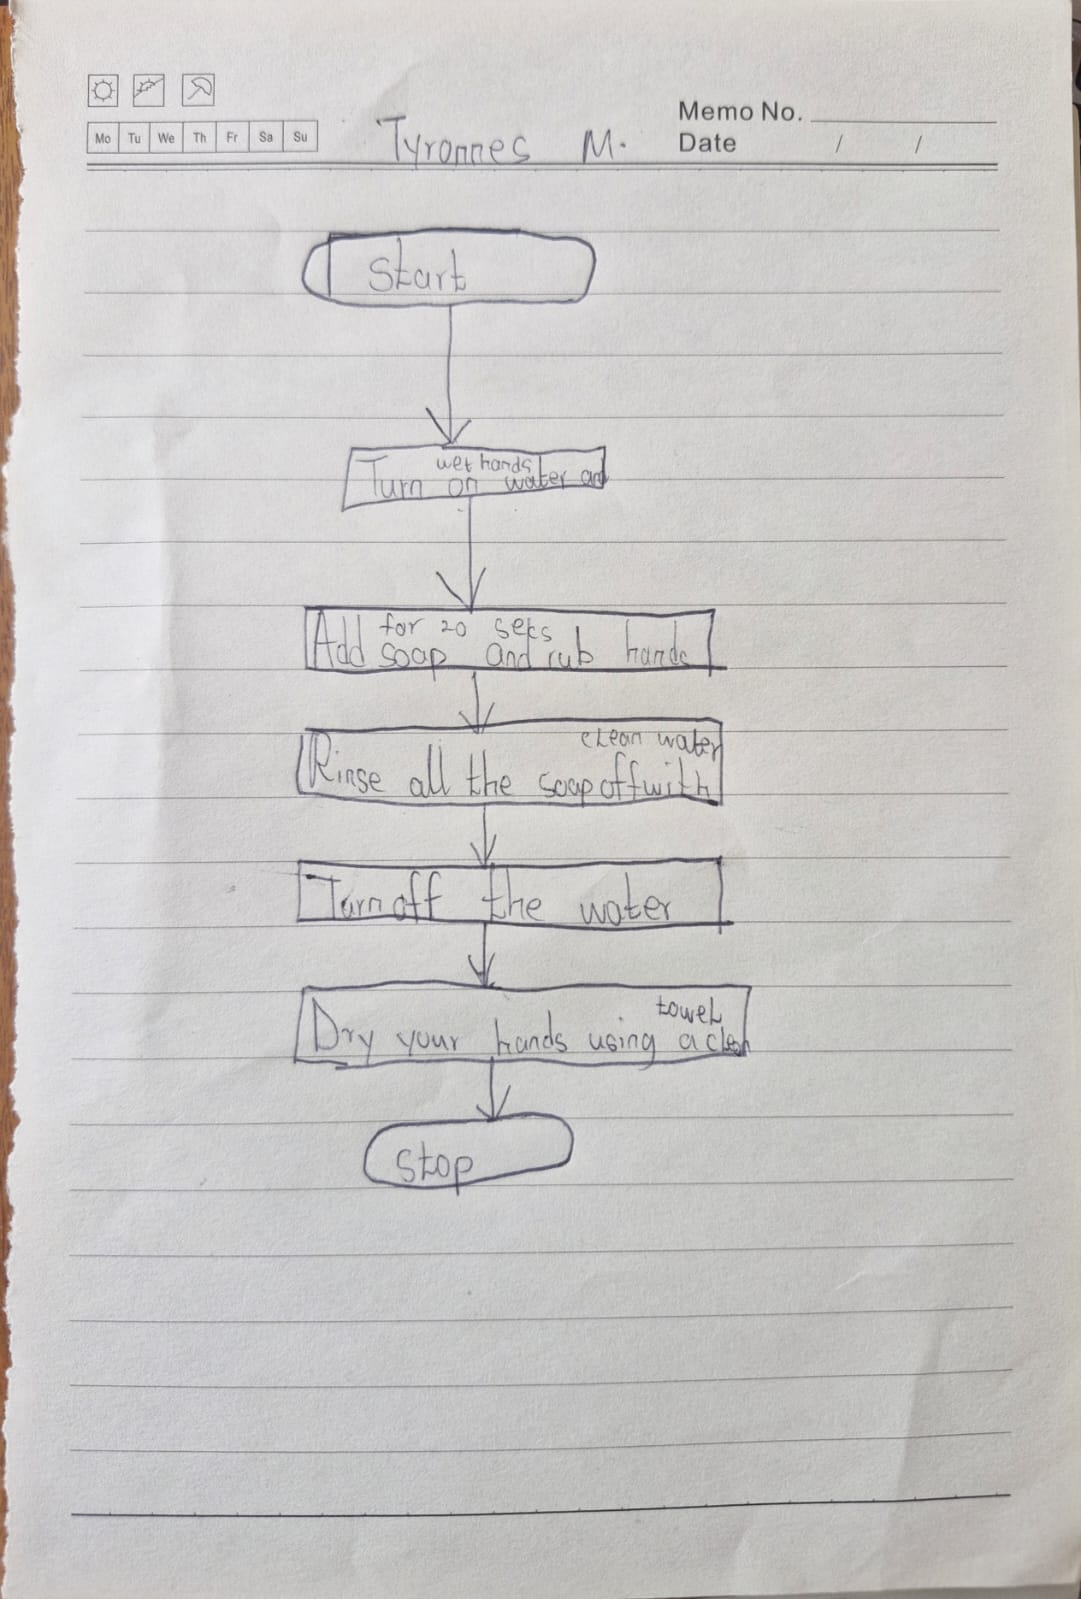 Mo Tu We Th Fr Sa Su
Tyronnes M.
Memo No.
Date / /
Start
wet hands
Turn on water and
for 20 seks
Add soap and rub hands
clean water
Rinse all the soap off with
Turn off the water
towel
Dry your hands using a clean
stop